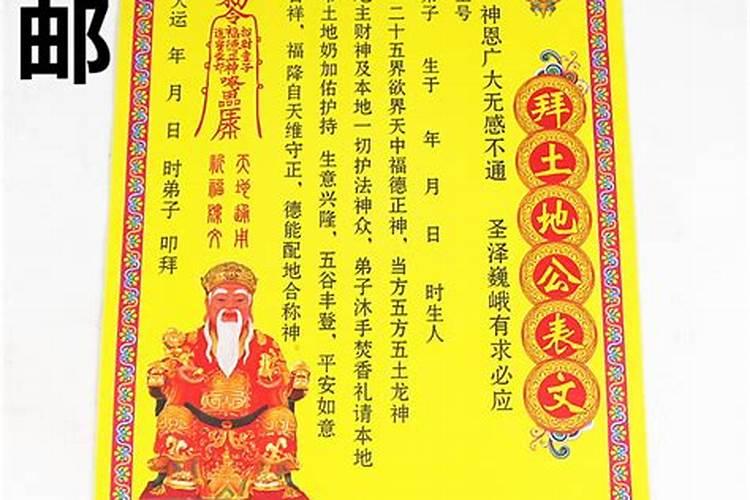 邮
拜土地公表文
神恩广大无感不通 圣泽巍峨有求必应
号
弟子 生于 年 月 日 时生人
二十五界欲界天中福德正神，当方五方五土龙神
主财神及本地一切护法神众，弟子沐手焚香礼请本地
土地奶加佑护持 生意兴隆，五谷丰登，平安如意
祥，福降自天维守正，德能配地合称神。
令
招财童子
福德正神
天地通用
天运 年 月 日 时弟子 叩拜